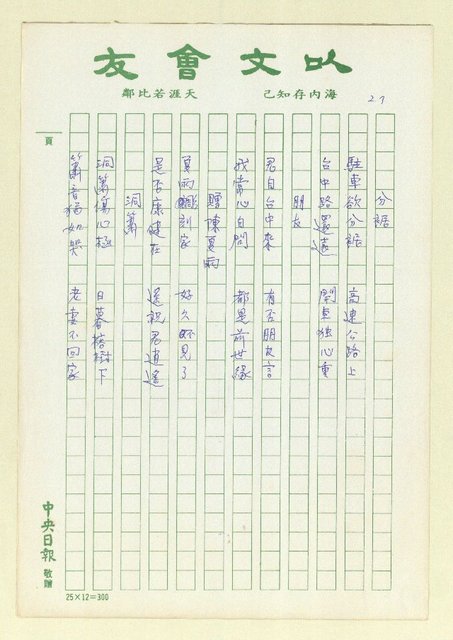 以文會友
海內存知己　天涯若比鄰
27
頁
分裾
駐車欲分裾　高速公路上
台中路還遠　開車独心重
朋友
君自台中來　有否朋友言
我常心自問　都是前世緣
贈陳夏雨
夏雨雕刻家　好久不見了
是否康健在　遙祝君逍遙
洞簫
洞簫傷心極　日暮榕樹下
簫音猶如哭　老妻不回家
中央日報 敬贈
25×12=300